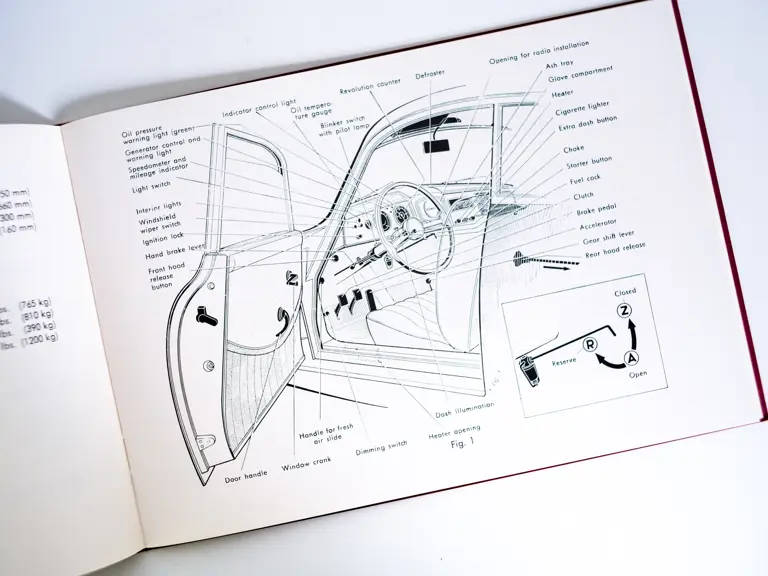 50 mm)
660 mm)
300 mm)
(160 mm)
lbs. (765 kg)
lbs. (810 kg)
lbs. (390 kg)
lbs. (1200 kg)
Opening for radio installation
Ash tray
Glove compartment
Heater
Cigarette lighter
Extra dash button
Choke
Starter button
Fuel cock
Clutch
Brake pedal
Accelerator
Gear shift lever
Rear hood release
Defroster
Revolution counter
Oil tempera-
ture gauge
Indicator control light
Blinker switch
with pilot lamp
Oil pressure
warning light (green)
Generator control and
warning light
Speedometer and
mileage indicator
Light switch
Interior lights
Windshield
wiper switch
Ignition lock
Hand brake lever
Front hood
release
button
Closed
Z
R
A
Reserve
Open
Dash illumination
Heater opening
Handle for fresh
air slide
Dimming switch
Window crank
Door handle
Fig. 1